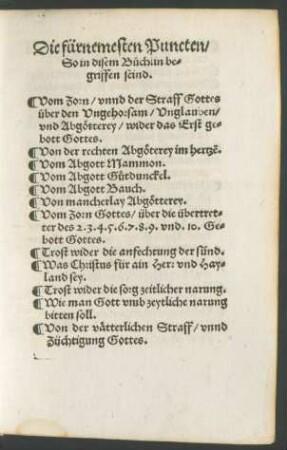 Die fürnemesten Puncten/
So in disem Büchlin be
griffen seind.
¶ Vom Zorn/ vnnd der Straff Gottes
über den Vngehorsam/ Vnglauben/
vnd Abgötterey/ wider das Erst ge
bott Gottes.
¶ Von der rechten Abgöterey im hertzē.
¶ Vom Abgott Mammon.
¶ Vom Abgott Gůtdunckel.
¶ Vom Abgott Bauch.
¶ Von mancherlay Abgötterey.
¶ Vom Zorn Gottes/ über die übertret=
ter des 2.3.4.5.6.7.8.9. vnd. 10. Ge
bott Gottes.
¶ Trost wider die anfechtung der sünd.
¶ Was Christus für ain Her: vnd Hay
land sey.
¶ Trost wider die sorg zeitlicher narung.
¶ Wie man Gott vmb zeytliche narung
bitten soll.
¶ Von der vätterlichen Straff/ vnnd
Züchtigung Gottes.